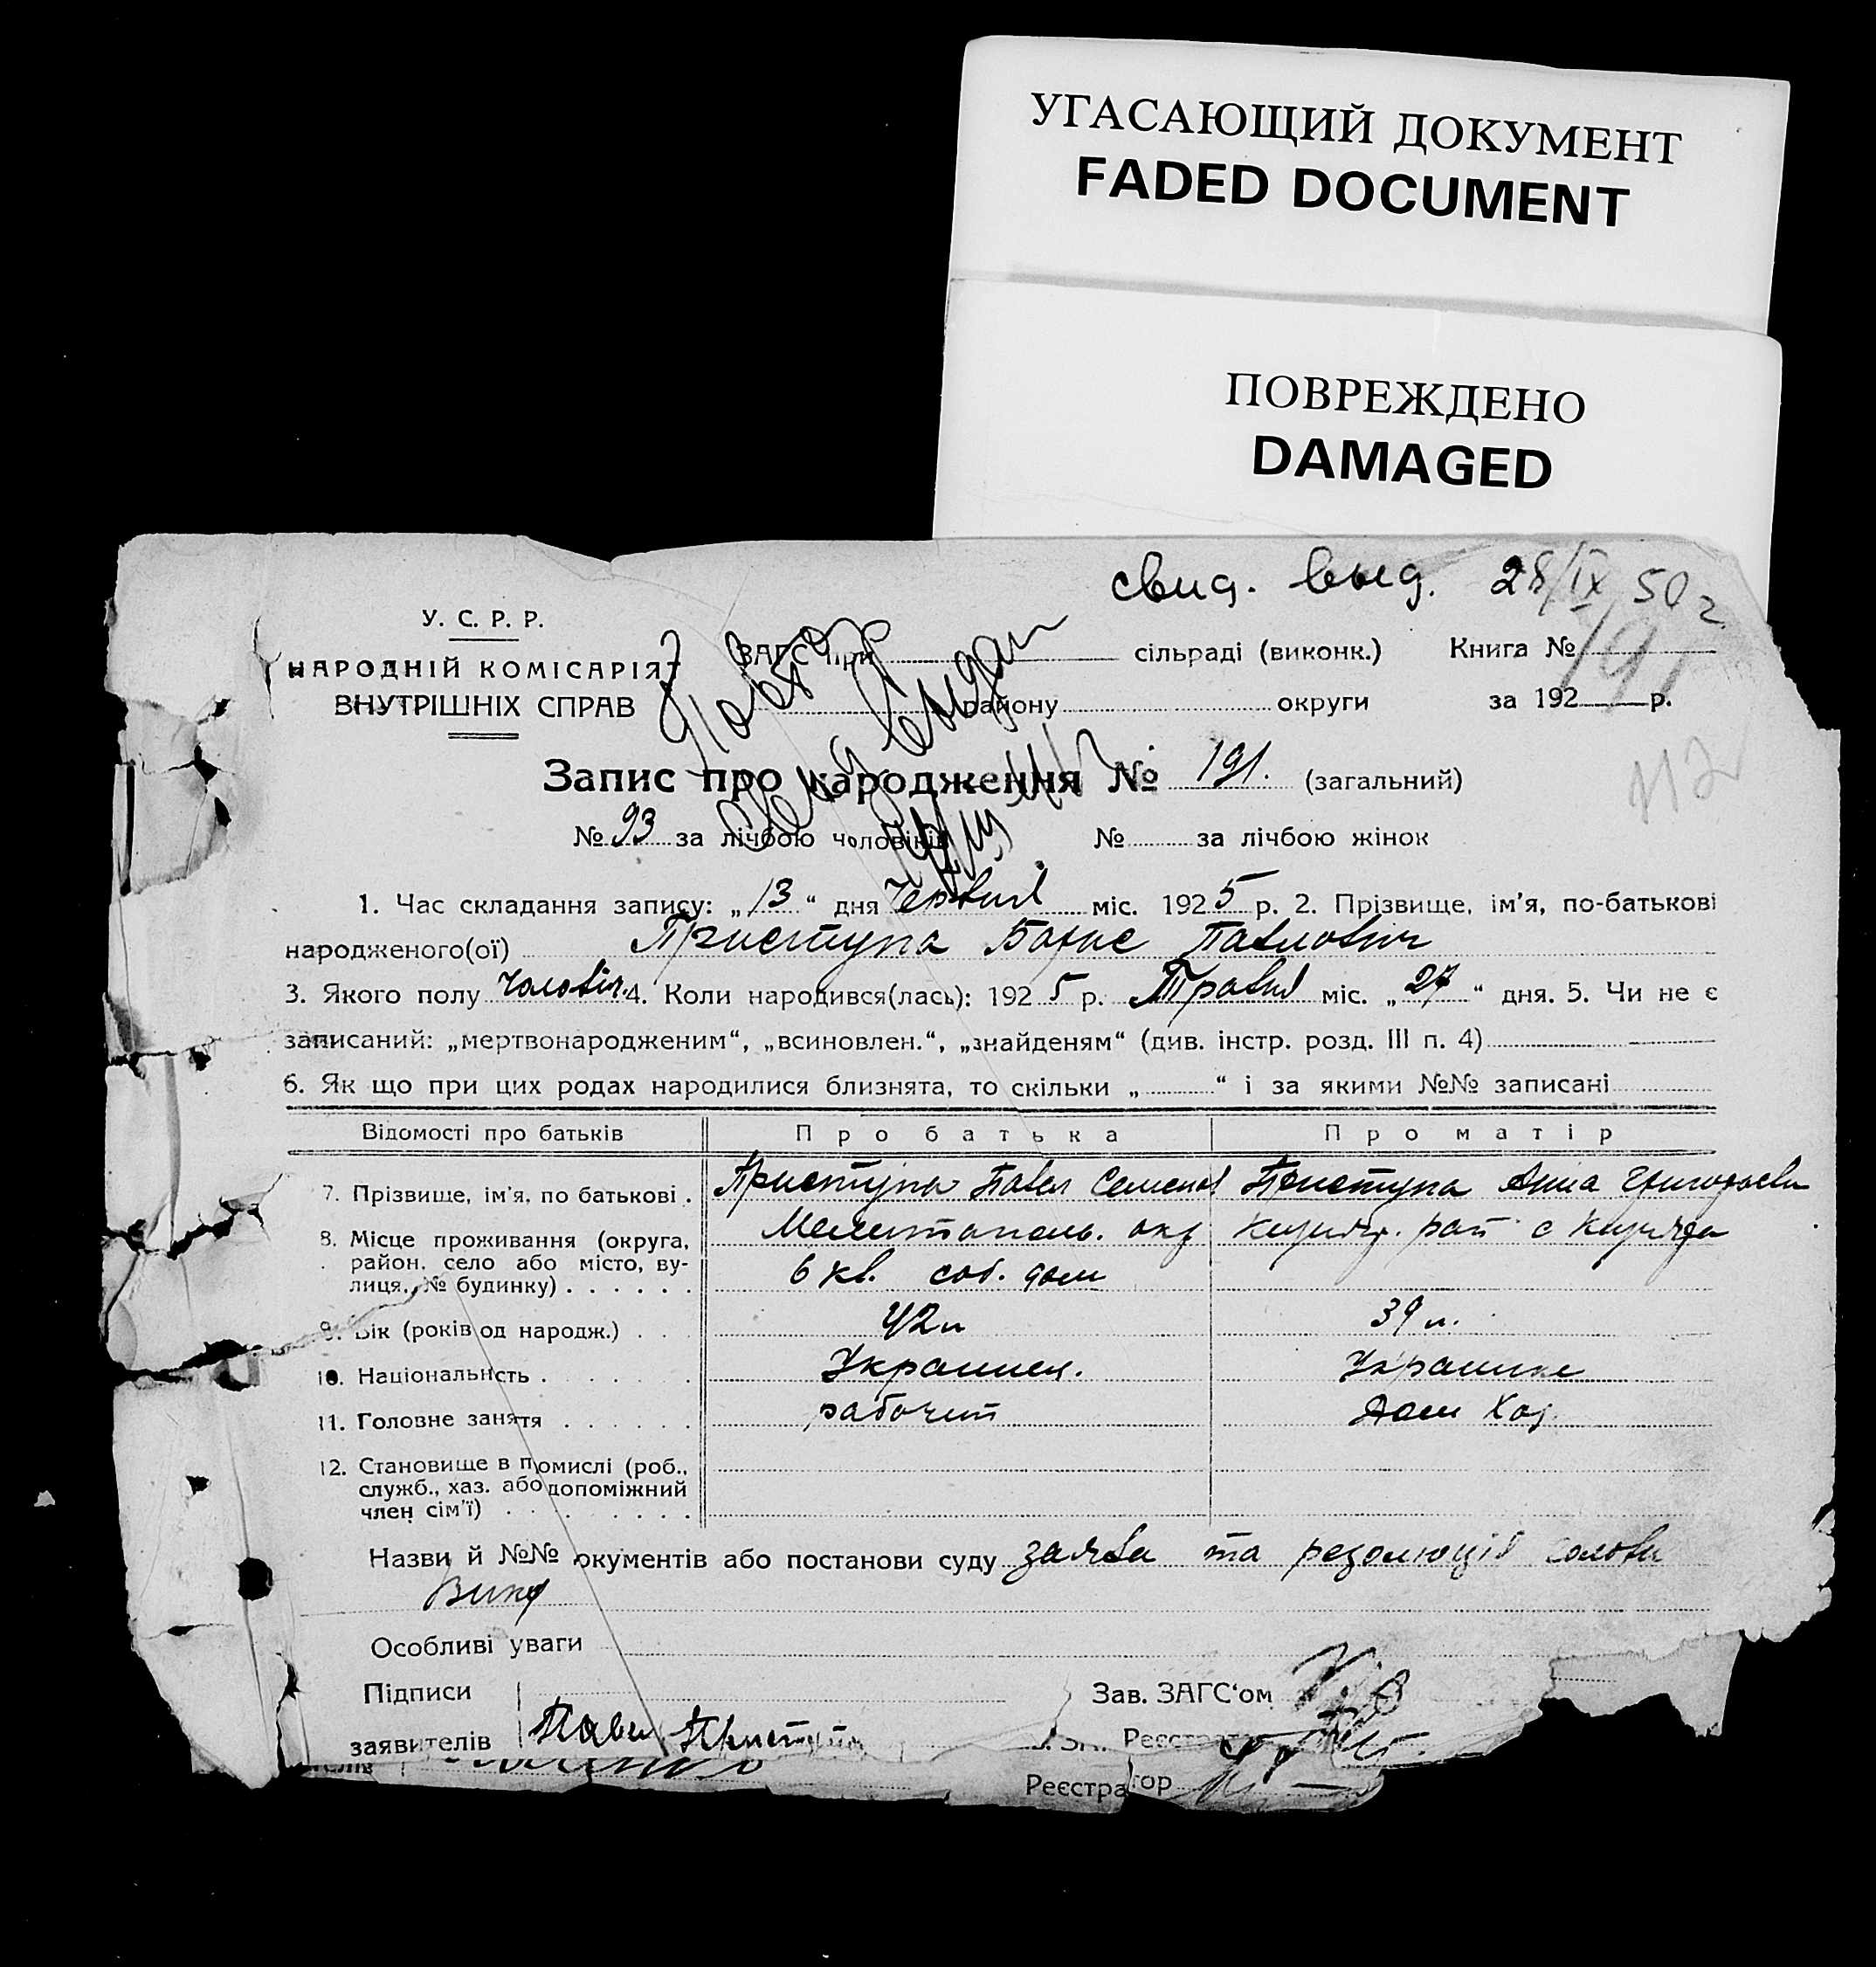 УГАСАЮЩИЙ ДОКУМЕНТ
FADED DOCUMENT
ПОВРЕЖДЕНО
DAMAGED
свид. выд. 28/IX 50 г
У. С. Р. Р.
НАРОДНІЙ КОМІСАРІЯТ
ВНУТРІШНІХ СПРАВ
ЗАГС при сільраді (виконк.) Книга № 191
району округи за 192 р.
Повтор
свид выдан
Запис про народження № 191. (загальний)
№ 93 за лічбою чоловіків № за лічбою жінок
1. Час складання запису: „ 13 “ дня Червня міс. 192 5 р. 2. Прізвище, ім’я, по-батькові
народженого(ої) Приступа Борис Павлович
3. Якого полу чоловіч. 4. Коли народився(лась): 192 5 р. Травня міс. „ 27 “ дня. 5. Чи не є
записаний: „мертвонародженим“, „всиновлен.“, „знайденям“ (див. інстр. розд. III п. 4)
6. Як що при цих родах народилися близнята, то скільки „ “ і за якими №№ записані
Відомості про батьків Про батька Про матір
7. Прізвище, ім’я, по батькові . Приступа Павел Семенов Приступа Анна Григорьевн
8. Місце проживання (округа, Мелитополь. окр
район. село або місто, ву-
лиця., № будинку) . . . . . . 6 кв. соб. дом
9. Вік (років од народж.) . . . 42 л 39 л.
10. Національність . . . . . . . Украинец. Украинка
11. Головне заняття . . . . . . рабочий Дом Хоз.
12. Становище в помислі (роб.,
служб., хаз. або допоміжний
член сім’ї) . . . . . . . .
Назви й №№ окументів або постанови суду заява та резолюція голови
Вику
Особливі уваги
Підписи Зав. ЗАГС‘ом
заявителів Павел Приступа Реєстра
Реєстратор